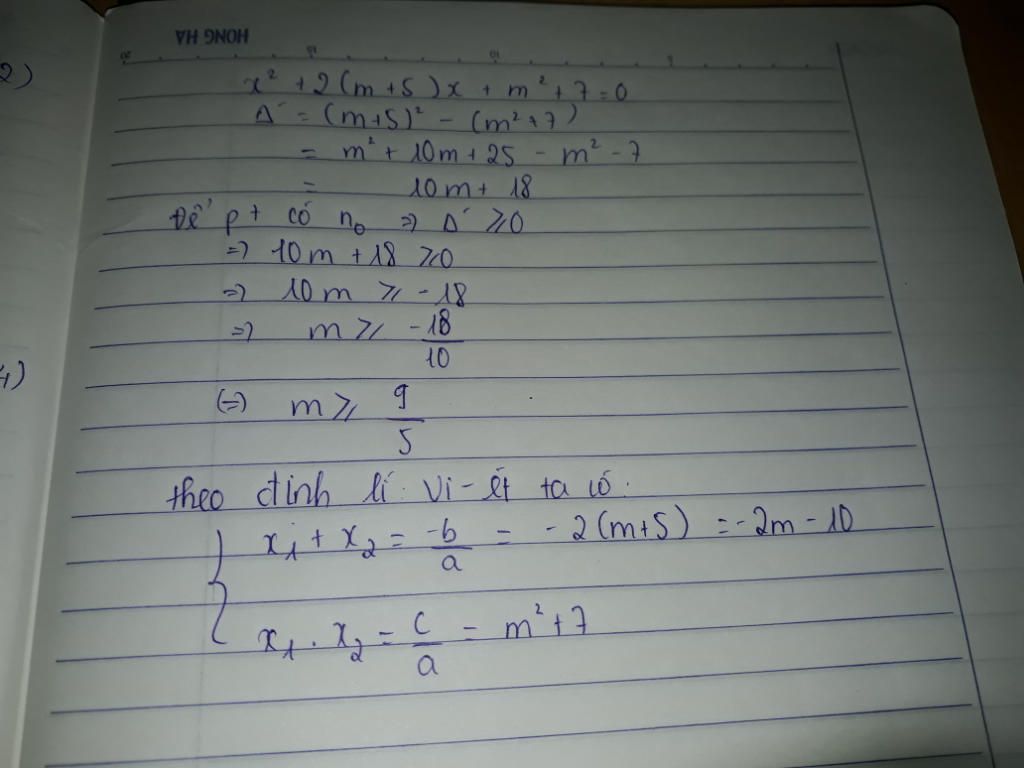 HONG HA
2)
x² + 2(m+5)x + m²+7=0
Δ' = (m+5)² - (m²+7)
= m² + 10m + 25 - m² - 7
= 10m + 18
Để pt có n₀ ⇒ Δ' ⩾0
⇒ 10m + 18 ⩾0
⇒ 10m ⩾ -18
⇒ m ⩾ -18/10
4)
(=) m ⩾ 9/5
theo định lí Vi-ét ta có:
{ x₁ + x₂ = -b/a = - 2(m+5) = -2m - 10
x₁ . x₂ = c/a = m²+7